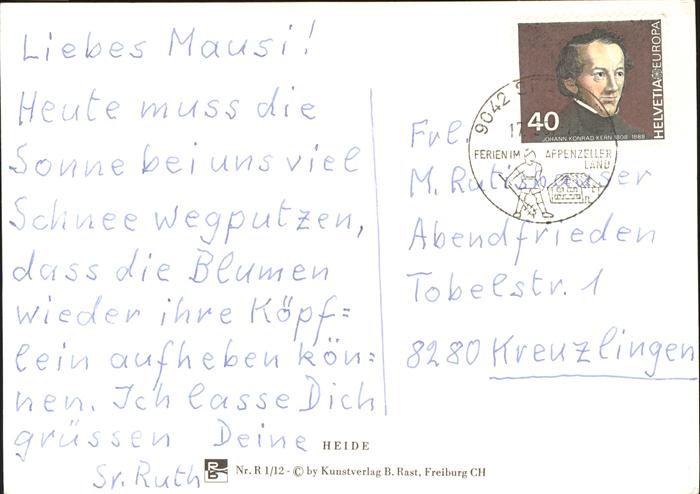 Liebes Mausi!
Heute muss die
Sonne bei uns viel
Schnee wegputzen,
dass die Blumen
wieder ihre Köpf=
lein aufheben kön=
nen. Ich lasse Dich
grüssen Deine
Sr. Ruth
HEIDE
Nr. R 1/12 - © by Kunstverlag B. Rast, Freiburg CH
40
JOHANN KONRAD KERN 1808-1888
HELVETIA EUROPA
9042
FERIEN IM APPENZELLER
LAND
Frl.
M.
Abendfrieden
Tobelstr. 1
8280 Kreuzlingen